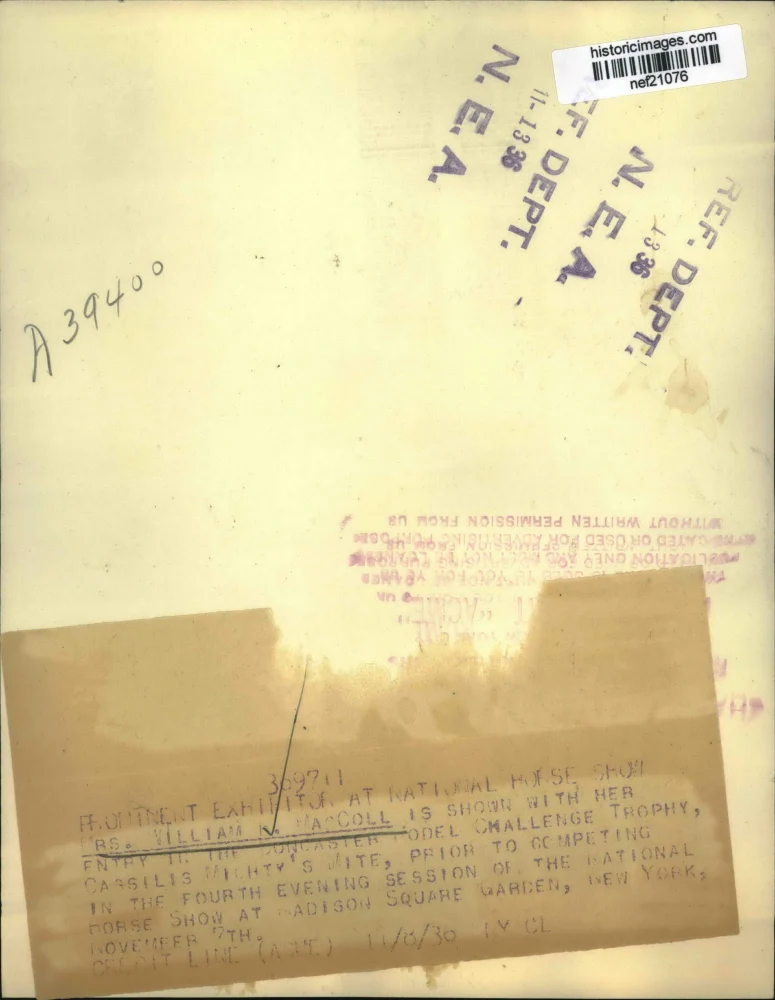 historicimages.com
nef21076
REF. DEPT.
11-13 36
N. E. A.
REF. DEPT.
13 36
N. E. A.
A39400
WITHOUT WRITTEN PERMISSION FROM US
OR USED FOR ADVERTISING
"ACME"
369711
PROMINENT EXHIBITOR AT NATIONAL HORSE SHOW
MRS. WILLIAM MACCOLL IS SHOWN WITH HER
ENTRY IN THE DONCASTER MODEL CHALLENGE TROPHY,
CASSILIS MIGHTY'S MITE, PRIOR TO COMPETING
IN THE FOURTH EVENING SESSION OF THE NATIONAL
HORSE SHOW AT MADISON SQUARE GARDEN, NEW YORK,
NOVEMBER 7TH.
CREDIT LINE (ACME) 11/8/36 CL